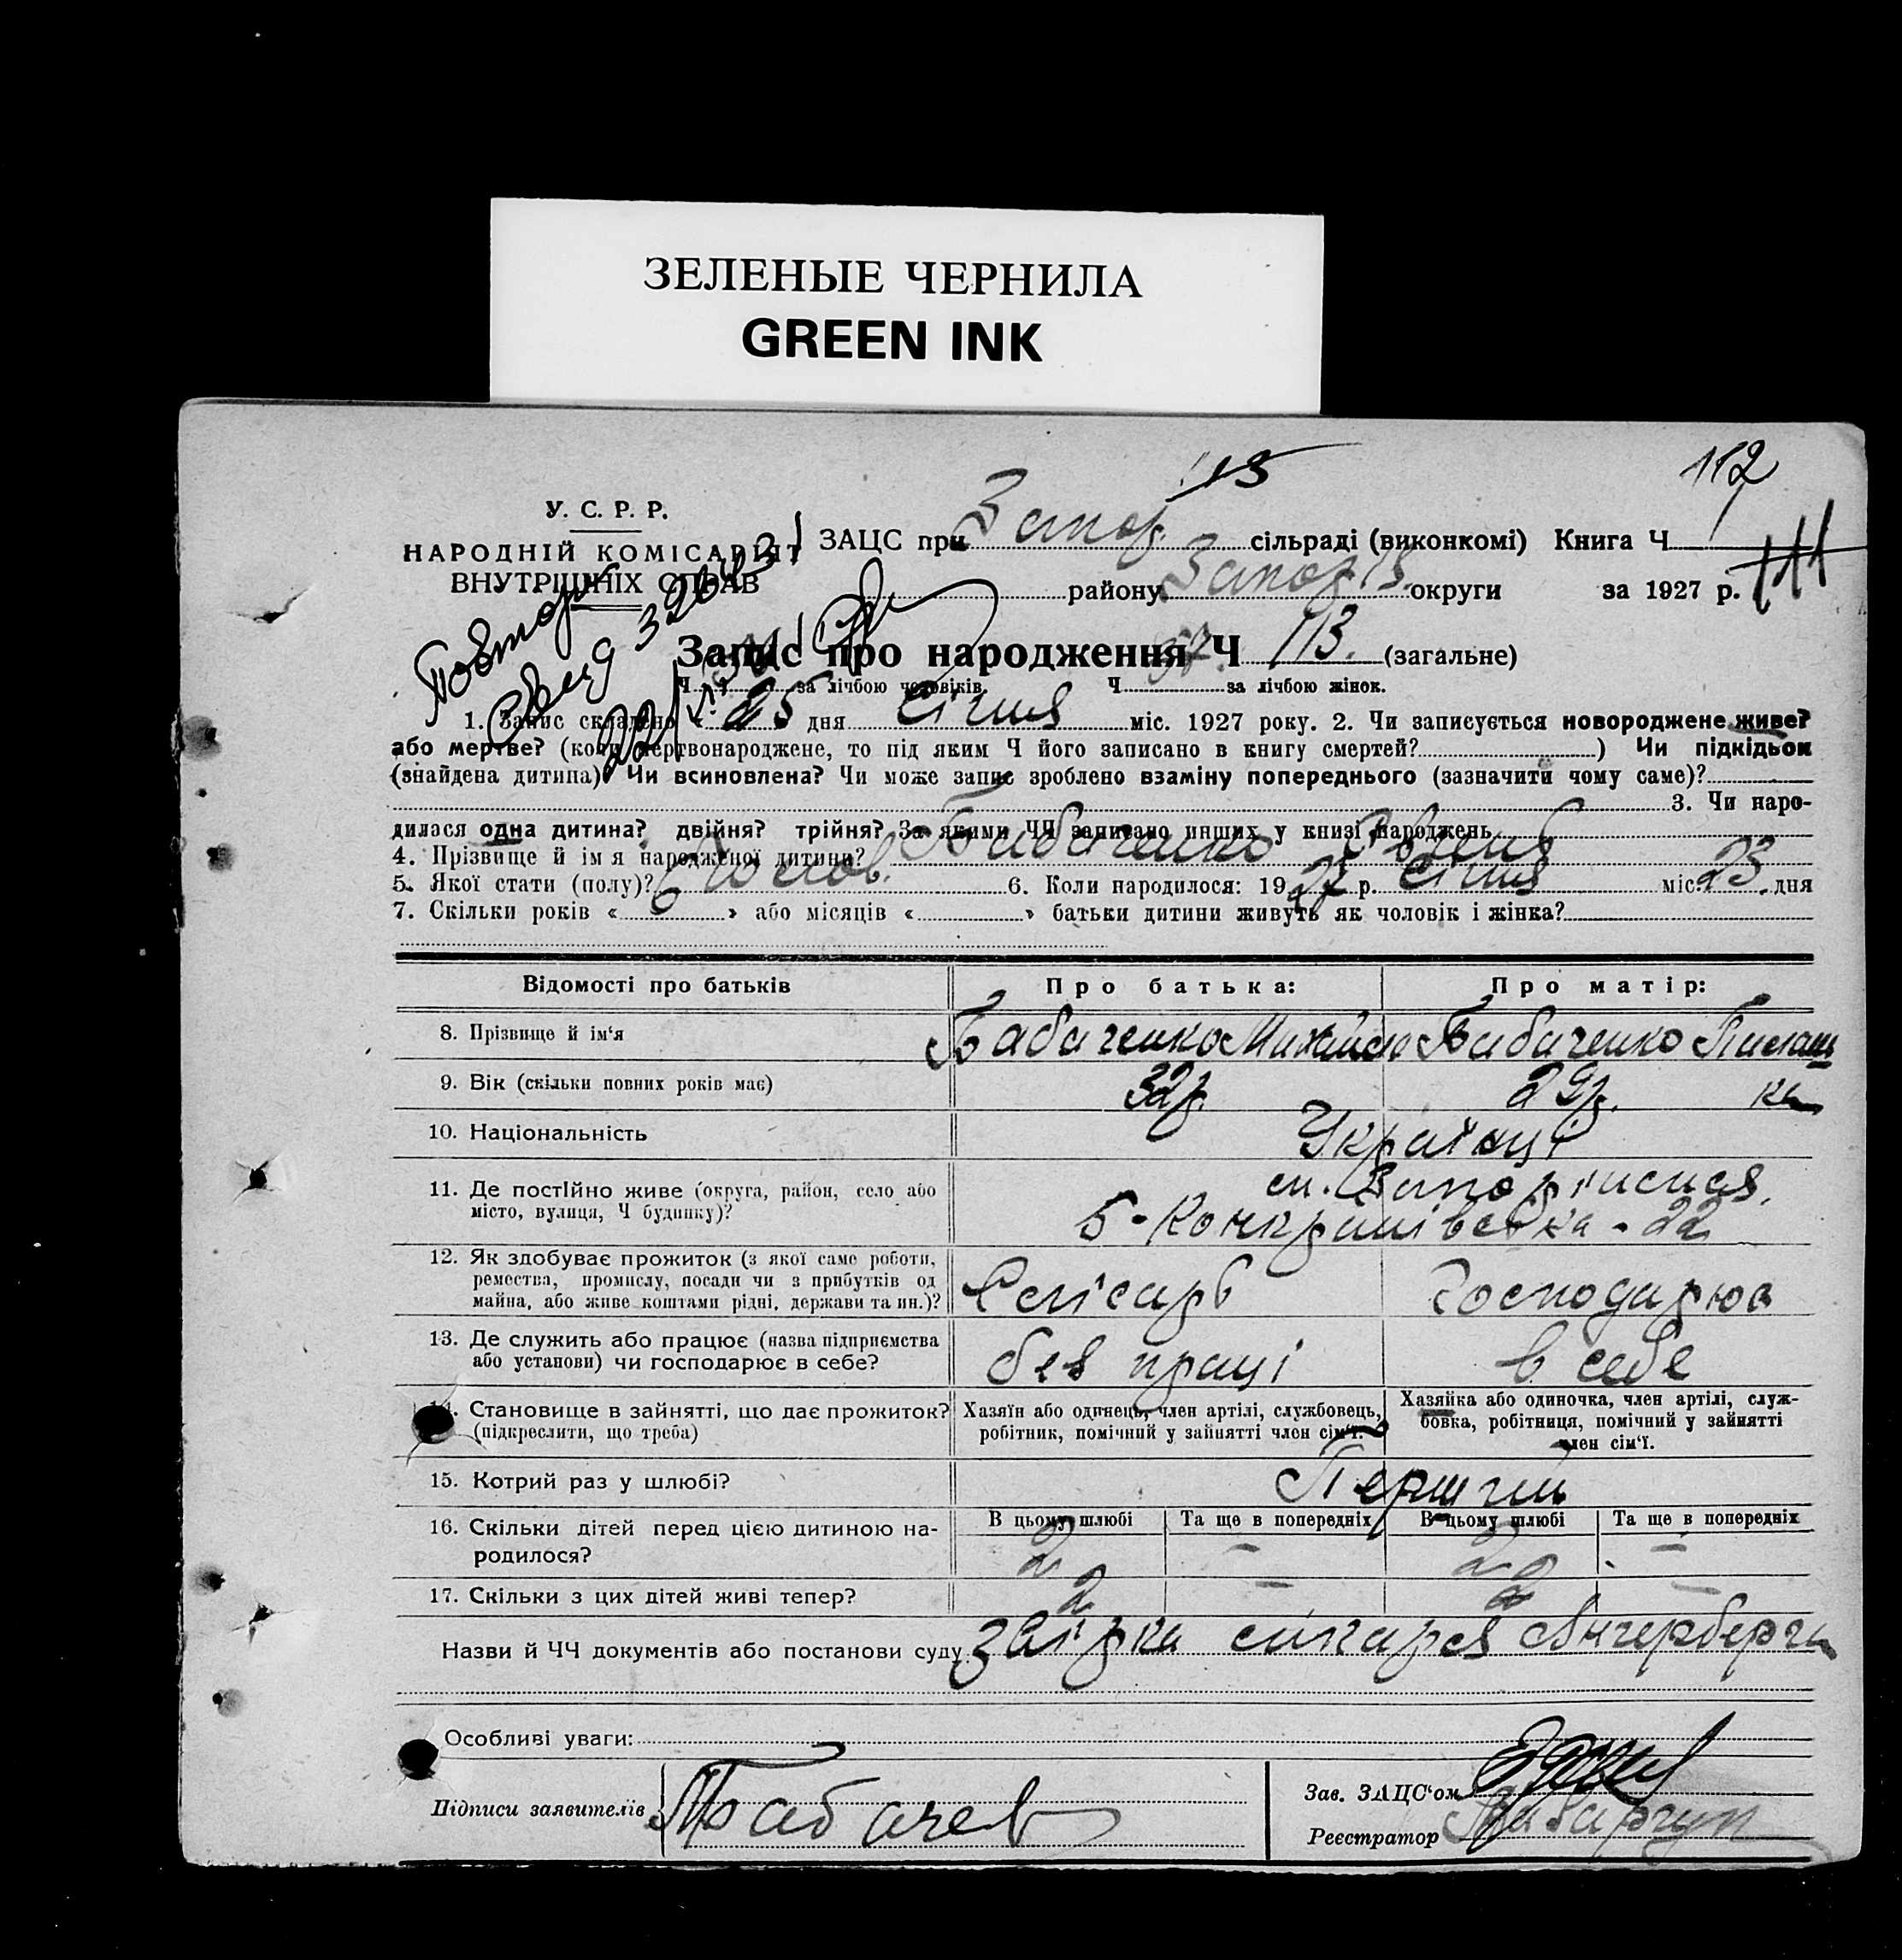 ЗЕЛЕНЫЕ ЧЕРНИЛА
GREEN INK
115
112
У. С. Р. Р.
НАРОДНІЙ КОМІСАРІЯТ
ВНУТРІШНІХ СПРАВ
ЗАЦС при Запор. сільраді (виконкомі) Книга Ч
111
району Запоріз. округи за 1927 р.
Повторн
Свид
Запис про народження Ч 113. (загальне)
Ч за лічбою чоловіків. Ч за лічбою жінок.
1. Запис складено « 25 дня Січня міс. 1927 року. 2. Чи записується новороджене живе?
або мертве? (коли мертвонароджене, то під яким Ч його записано в книгу смертей? ) Чи підкідьок
(знайдена дитина)? Чи всиновлена? Чи може запис зроблено взаміну попереднього (зазначити чому саме)?
3. Чи наро-
дилася одна дитина? двійня? трійня? За якими ЧЧ записано инших у книзі народжень
4. Прізвище й ім я народженої дитини? Бабаченко Євгень
5. Якої стати (полу)? Чолов. 6. Коли народилося: 19 27 р. Січня міс. 23 дня
7. Скільки років « 6 » або місяців « » батьки дитини живуть як чоловік і жінка?
Відомості про батьків Про батька: Про матір:
8. Прізвище й ім‘я Бабаченко Михайло Бабаченко Пилаш
9. Вік (скільки повних років має) 32р. 29р. ка
10. Національність Українці
11. Де постійно живе (округа, район, село або
місто, вулиця, Ч будинку)?
м. Запоріжжя,
22
12. Як здобуває прожиток (з якої саме роботи,
ремества, промислу, посади чи з прибутків од
майна, або живе коштами рідні, держави та ин.)?
Слісарь Господарює
13. Де служить або працює (назва підприємства
або установи) чи господарює в себе?
без праці в себе
14. Становище в зайнятті, що дає прожиток?
(підкреслити, що треба)
Хазяїн або одинець, член артілі, службовець,
робітник, помічний у зайнятті член сім‘ї.
Хазяйка або одиночка, член артілі, служ-
бовка, робітниця, помічний у зайнятті
член сім‘ї.
15. Котрий раз у шлюбі? Перший
16. Скільки дітей перед цією дитиною на-
родилося?
В цьому шлюбі Та ще в попередніх В цьому шлюбі Та ще в попередніх
2 – 2 –
17. Скільки з цих дітей живі тепер? 2 – 2 –
Назви й ЧЧ документів або постанови суду
Особливі уваги:
Підписи заявителів
Зав. ЗАЦС‘ом
Реєстратор